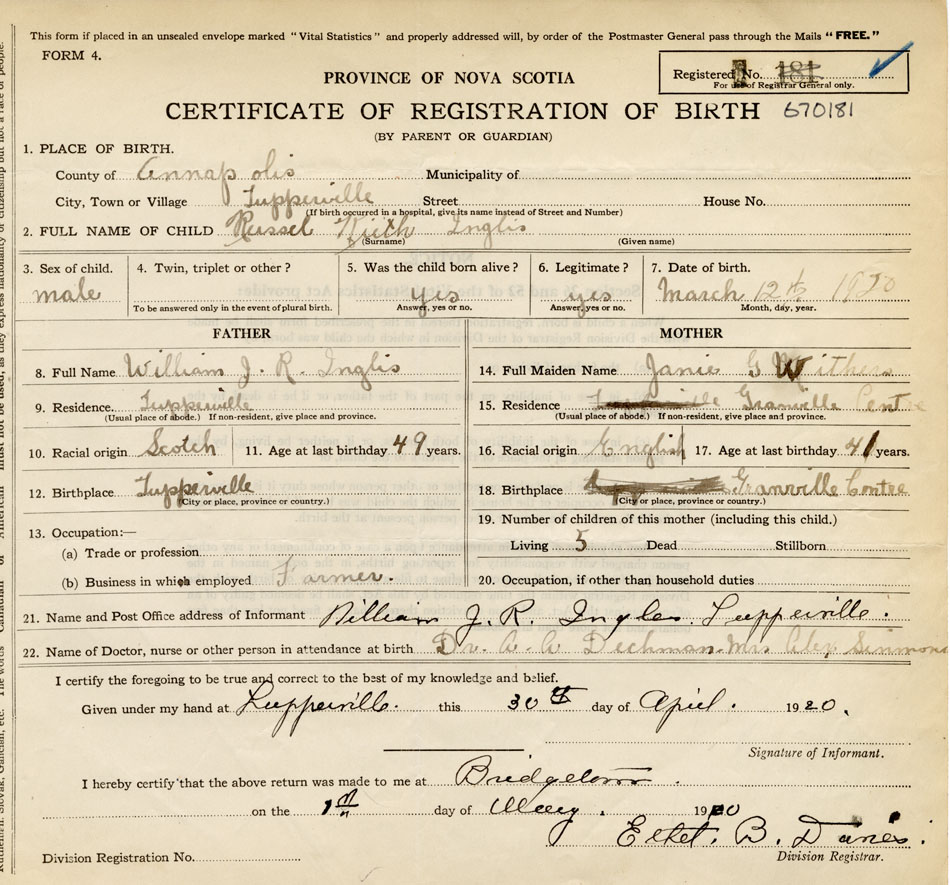 This form if placed in an unsealed envelope marked "Vital Statistics" and properly addressed will, by order of the Postmaster General pass through the Mails "FREE."
FORM 4.
Registered No. 181
For use of Registrar General only.
PROVINCE OF NOVA SCOTIA
CERTIFICATE OF REGISTRATION OF BIRTH 670181
(BY PARENT OR GUARDIAN)
1. PLACE OF BIRTH.
County of Annapolis Municipality of
City, Town or Village Tupperville Street House No.
(If birth occurred in a hospital, give its name instead of Street and Number)
2. FULL NAME OF CHILD Russel Kieth Inglis
(Surname) (Given name)
3. Sex of child. 4. Twin, triplet or other? 5. Was the child born alive? 6. Legitimate? 7. Date of birth.
male yes yes March 12th 1920
To be answered only in the event of plural birth. Answer, yes or no. Answer, yes or no. Month, day, year.
FATHER MOTHER
8. Full Name William J. R. Inglis 14. Full Maiden Name Janie G Withers
9. Residence. Tupperville 15. Residence Granville Centre
(Usual place of abode.) If non-resident, give place and province. (Usual place of abode.) If non-resident, give place and province.
10. Racial origin Scotch 11. Age at last birthday 49 years. 16. Racial origin English 17. Age at last birthday 41 years.
12. Birthplace Tupperville 18. Birthplace Granville Centre
(City or place, province or country.) (City or place, province or country.)
13. Occupation:— 19. Number of children of this mother (including this child.)
(a) Trade or profession Living 5 Dead Stillborn
(b) Business in which employed. Farmer. 20. Occupation, if other than household duties
21. Name and Post Office address of Informant William J. R. Ingles. Tupperville.
22. Name of Doctor, nurse or other person in attendance at birth Dr. A. A Dechman. Mrs Alex Simmons
I certify the foregoing to be true and correct to the best of my knowledge and belief.
Given under my hand at Tupperville. this 30th day of April. 1920.
Signature of Informant.
I hereby certify that the above return was made to me at Bridgetown.
on the 1st day of May. 1920
Ethel. B. Davies.
Division Registration No. Division Registrar.